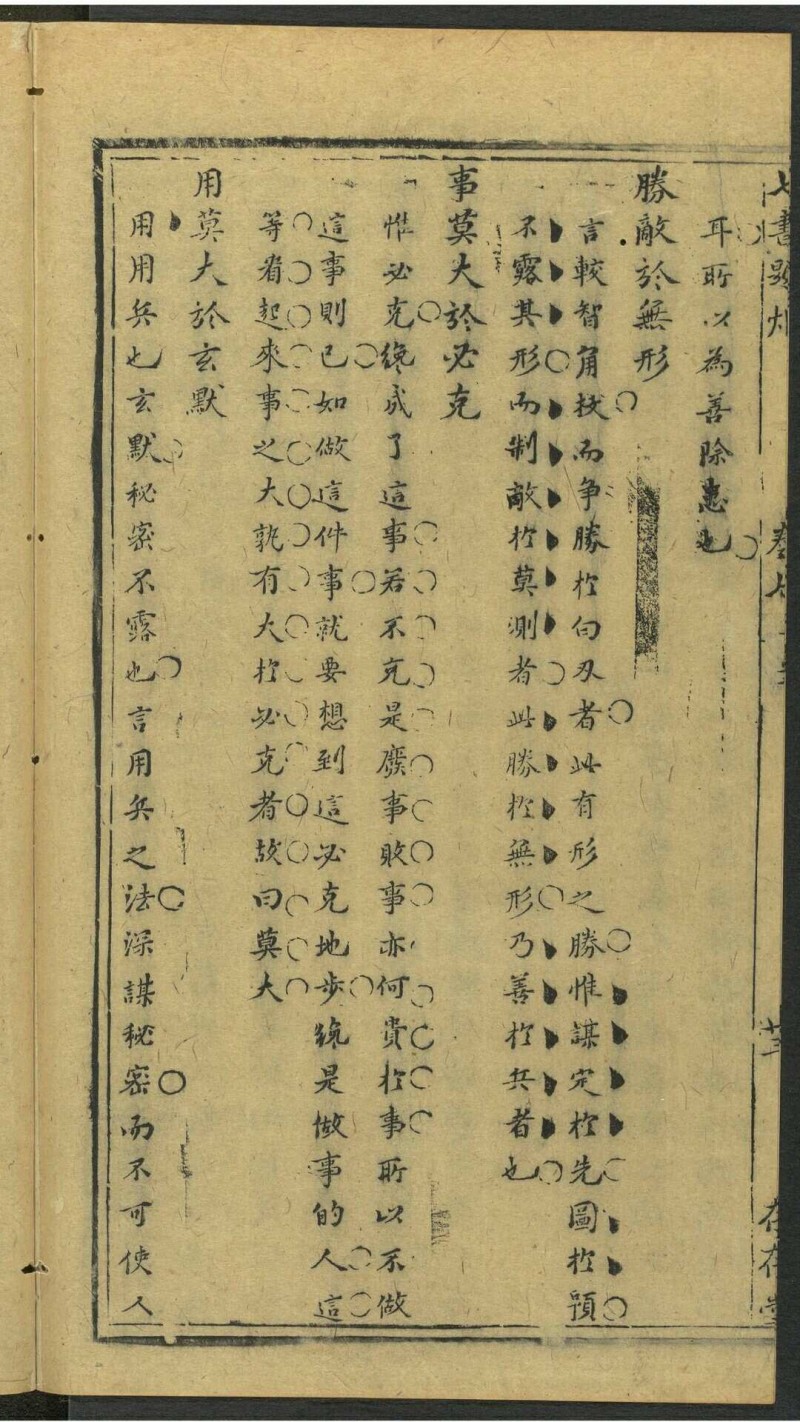 七書題炬
耳所以為善除患也
勝敵於無形
言較智角技而争勝於白刃者此有形之勝惟謀定於先圖於預
不露其形而制敵於莫測者此勝於無形乃善於兵者也
事莫大於必克
惟必克纔成了這事若不克是廢事敗事亦何貴於事所以不做
這事則已如做這件事就要想到這必克地步纔是做事的人這
等看起來事之大孰有大於必克者故曰莫大
用莫大於玄默
用用兵也玄默秘密不露也言用兵之法深謀秘密而不可使人